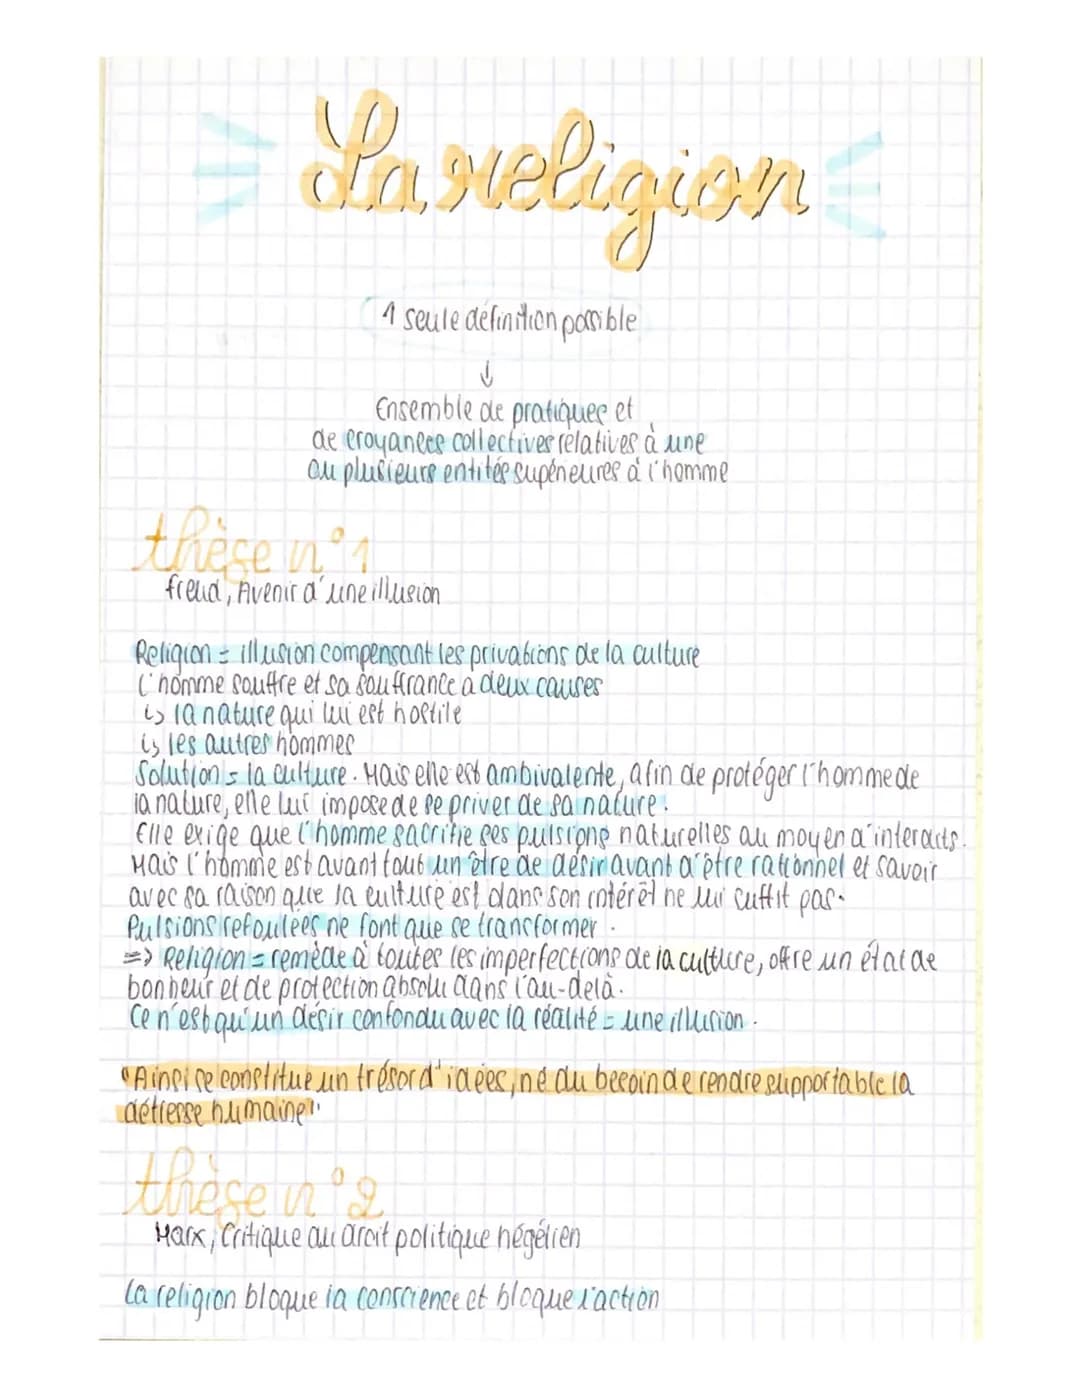 La religion
1 seule définition possible
↓
Ensemble de pratiques et
de croyances collectives relatives à une
ou plusieurs entités supérieures à l'homme
thèse n°1
Freud, Avenir d'une illusion
Religion = illusion compensant les privations de la culture
L'homme souffre et sa souffrance a deux causes
↳ la nature qui lui est hostile
↳ les autres hommes
Solution = la culture. Mais elle est ambivalente, afin de protéger l'homme de
la nature, elle lui impose de se priver de sa nature.
Elle exige que l'homme sacrifie ses pulsions naturelles au moyen d'interdits.
Mais l'homme est avant tout un être de désir avant d'être rationnel et savoir
avec sa raison que la culture est dans son intérêt ne lui suffit pas.
Pulsions refoulées ne font que se transformer.
=> Religion = remède à toutes les imperfections de la culture, offre un état de
bonheur et de protection absolu dans l'au-delà.
Ce n'est qu'un désir confondu avec la réalité = une illusion.
"Ainsi se constitue un trésor d'idées, né du besoin de rendre supportable la
détresse humaine"
thèse n°2
Marx, Critique du droit politique hégélien
La religion bloque la conscience et bloque l'action